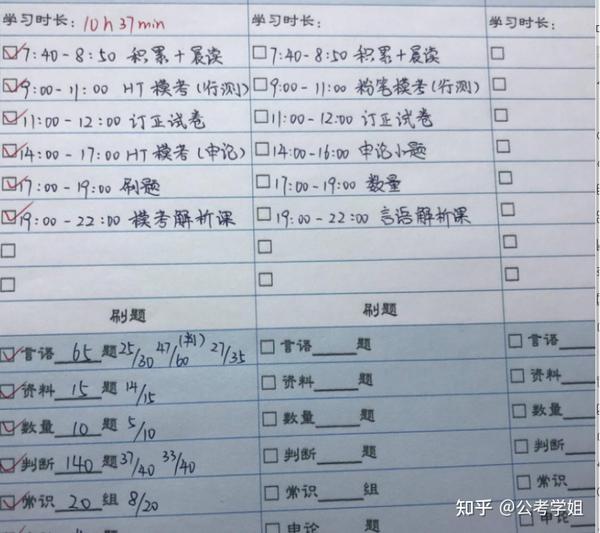 学习时长: 10h 37min
7:40-8:50 积累+晨读
9:00-11:00 HT 模考(行测)
11:00-12:00 订正试卷
14:00-17:00 HT 模考(申论)
17:00-19:00 刷题
19:00-22:00 模考解析课
刷题
言语 65 题 25/30 47/60 (判) 27/35
资料 15 题 14/15
数量 10 题 5/10
判断 140 题 37/40 33/40
常识 20 组 8/20
学习时长:
7:40-8:50 积累+晨读
9:00-11:00 粉笔模考(行测)
11:00-12:00 订正试卷
14:00-16:00 申论小题
17:00-19:00 数量
19:00-22:00 言语解析课
刷题
言语 题
资料 题
数量 题
判断 题
常识 组
申论 题
学习时长:
言语
资料
数量
判断
常识
申论
知乎 @公考学姐